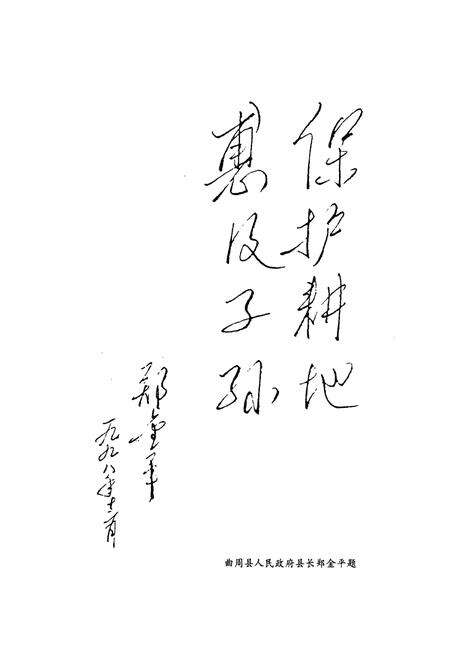 保护耕地
惠及子孙
郑金平
一九九八年十二月
曲周县人民政府县长郑金平题